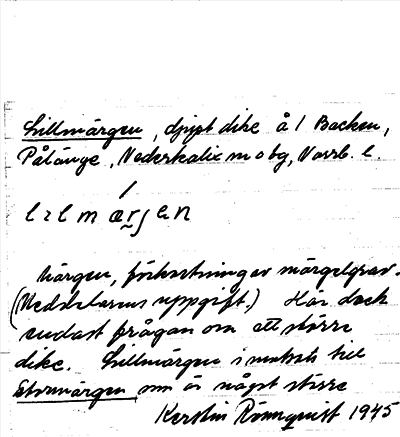 Lillmärgen, djupt dike å 1 Backen,
Pålänge, Nederkalix m o bg, Norrb. l.
Märgen, förkortning av märgelgrav.
(Meddelarens uppgift.) Här dock
endast frågan om ett större
dike. Lillmärgen i motsats till
Stormärgen som är något större
Kerstin Rönnqvist 1945